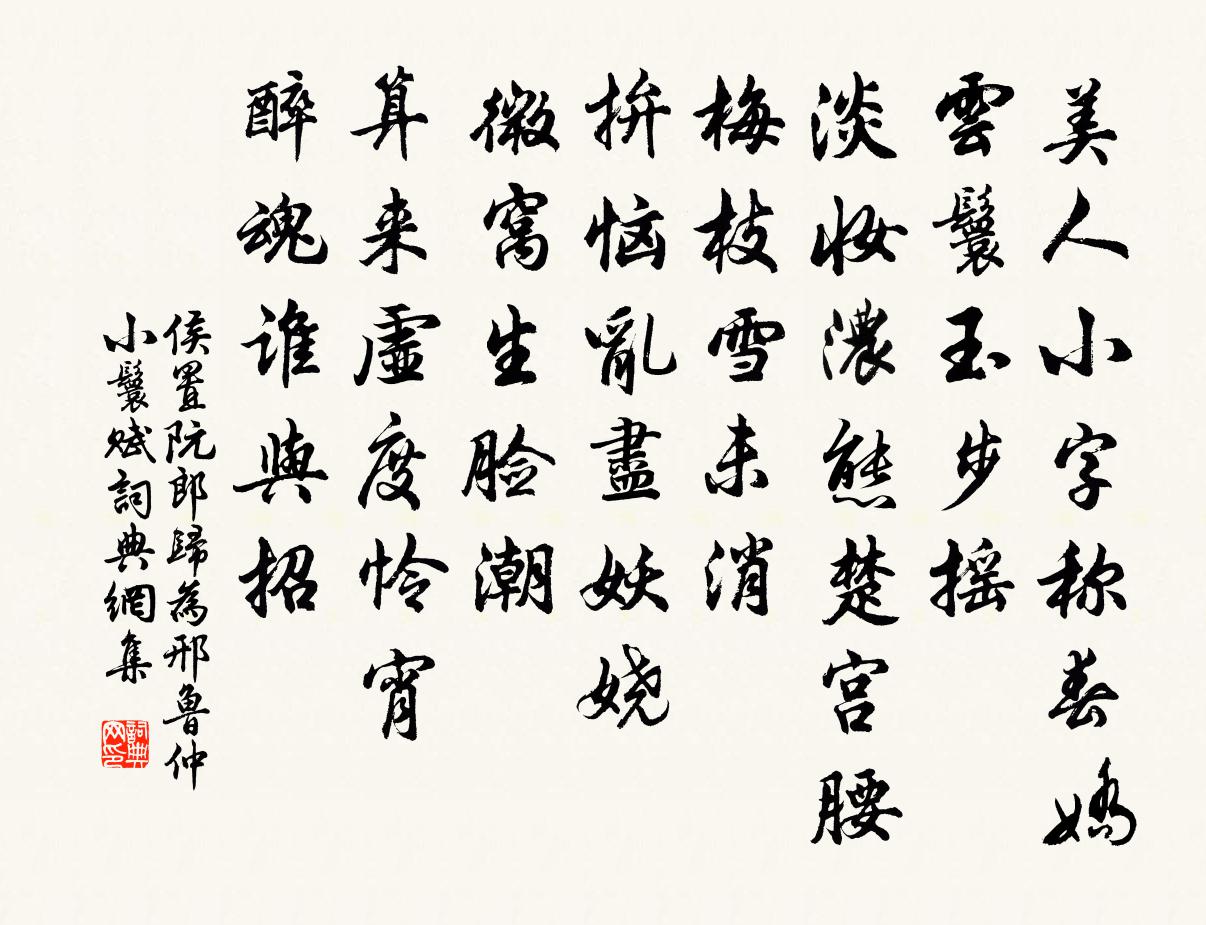 美人小字称春嬌
雲鬟玉步摇
淡妝濃態楚宫腰
梅枝雪未消
拚恼亂盡妖娆
微窩生脸潮
算来虚度怜宵
醉魂谁與招
侯置阮郎歸為邢魯仲
小鬟赋詞典網集
詞典
网印